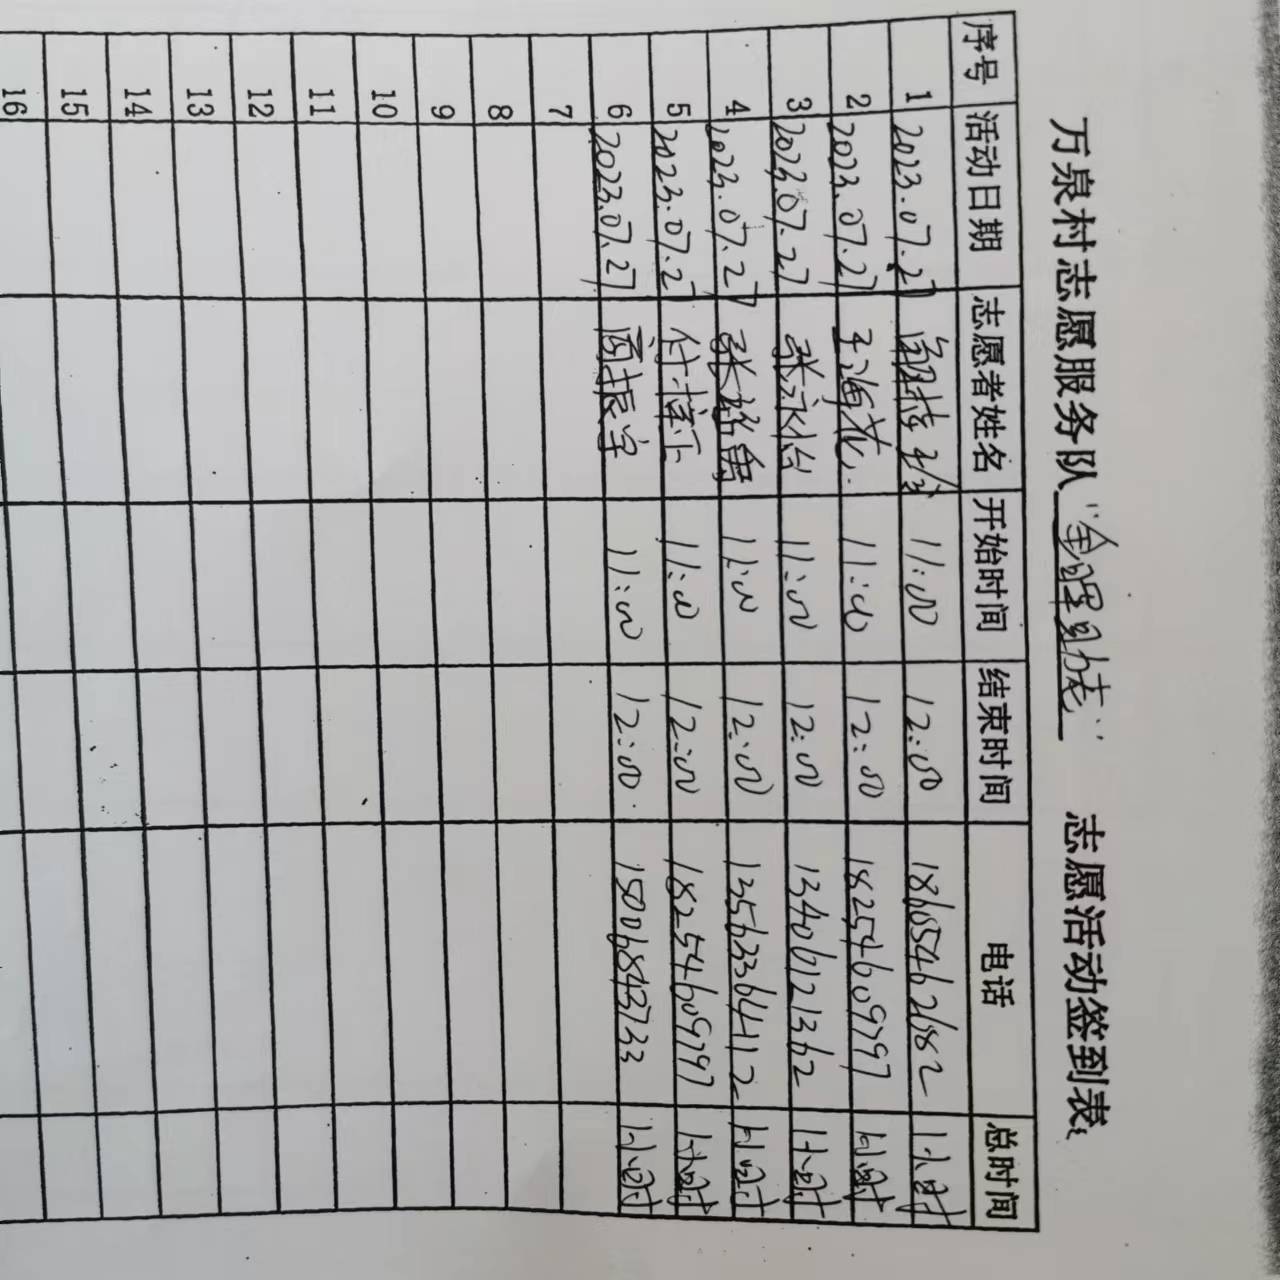 万泉村志愿服务队“金晖助老” 志愿活动签到表
序号 活动日期 志愿者姓名 开始时间 结束时间 电话 总时间
1 2023.07.27 11:00 12:00 18605462682 1小时
2 2023.07.27 王海花 11:00 12:00 18254609797 1小时
3 2023.07.27 张永怡 11:00 12:00 13406121362 1小时
4 2023.07.27 11:00 12:00 13563364112 1小时
5 2023.07.27 付博正 11:00 12:00 18254609797 1小时
6 2023.07.27 商振宇 11:00 12:00 15006843733 1小时
7
8
9
10
11
12
13
14
15
16